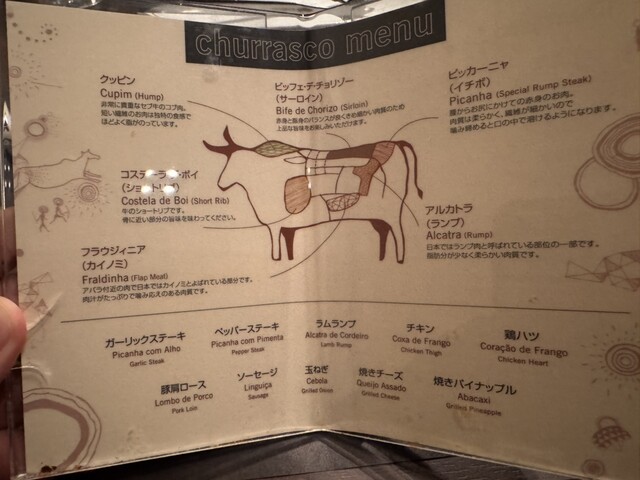 churrasco menu
クッピン
Cupim (Hump)
非常に貴重なセブ牛のコブ肉。
短い繊維のお肉は独特の食感で
ほどよく脂がのっています。
ビッフェ・デ・チョリゾー
(サーロイン)
Bife de Chorizo (Sirloin)
赤身と脂身のバランスが良くきめ細かい肉質のため
上品な旨味をお楽しみいただけます。
ピッカーニャ
(イチボ)
Picanha (Special Rump Steak)
腰からお尻にかけての赤身のお肉。
肉質は柔らかく、繊維が細かいので
噛み締めると口の中で溶けるようになります。
(ショートリブ)
Costela de Boi (Short Rib)
牛のショートリブです。
骨に近い部分の旨味を味わってください。
アルカトラ
(ランプ)
Alcatra (Rump)
日本ではランプ肉と呼ばれている部位の一部です。
脂肪分が少なく柔らかい肉質です。
フラウジィニア
(カイノミ)
Fraldinha (Flap Meat)
アバラ付近の肉で日本ではカイノミとよばれている部分です。
肉汁がたっぷりで噛み応えのある肉質です。
ガーリックステーキ
Picanha com Alho
Garlic Steak
ペッパーステーキ
Picanha com Pimenta
Pepper Steak
ラムランプ
Alcatra de Cordeiro
Lamb Rump
チキン
Coxa de Frango
Chicken Thigh
鶏ハツ
Coração de Frango
Chicken Heart
豚肩ロース
Lombo de Porco
Pork Loin
ソーセージ
Linguiça
Sausage
玉ねぎ
Cebola
Grilled Onion
焼きチーズ
Queijo Assado
Grilled Cheese
焼きパイナップル
Abacaxi
Grilled Pineapple